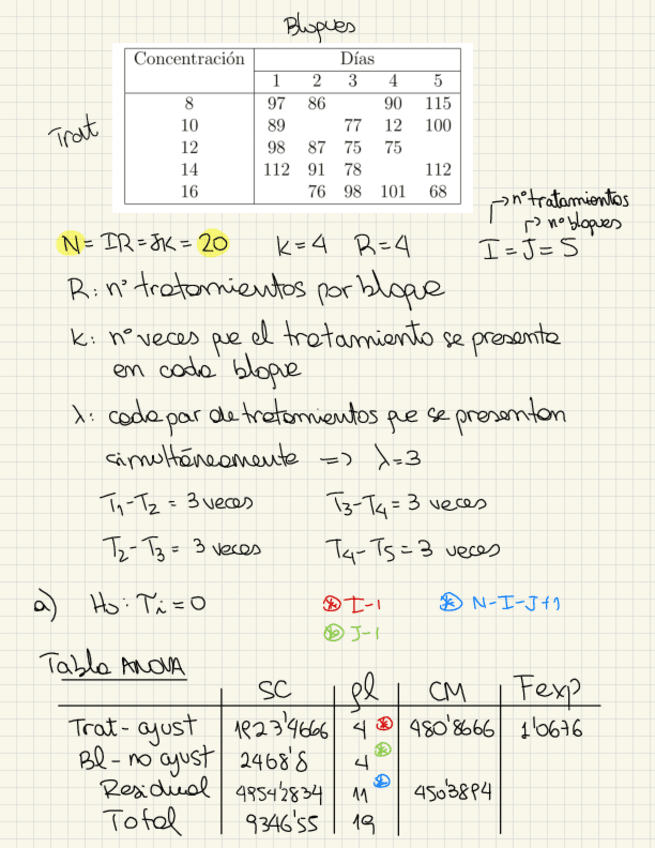 Bloques
Concentración Días
1 2 3 4 5
8 97 86 90 115
10 89 77 12 100
Trat
12 98 87 75 75
14 112 91 78 112
16 76 98 101 68
→ nº tratamientos
→ nº bloques
N = IR = JK = 20 K = 4 R = 4 I = J = 5
R: nº tratamientos por bloque
K: nº veces que el tratamiento se presenta
en cada bloque
λ: cada par de tratamientos que se presentan
simultáneamente => λ=3
T₁-T₂ = 3 veces T₃-T₄ = 3 veces
T₂-T₃ = 3 veces T₄-T₅ = 3 veces
a) H₀: τᵢ = 0 * I-1 * N-I-J+1
* J-1
Tabla ANOVA
SC gl CM Fexp
Trat-ajust 1923'4666 4 * 480'8666 1'0676
Bl-no ajust 2468'8 4 *
Residual 4954'2834 11 * 450'3894
Total 9346'55 19